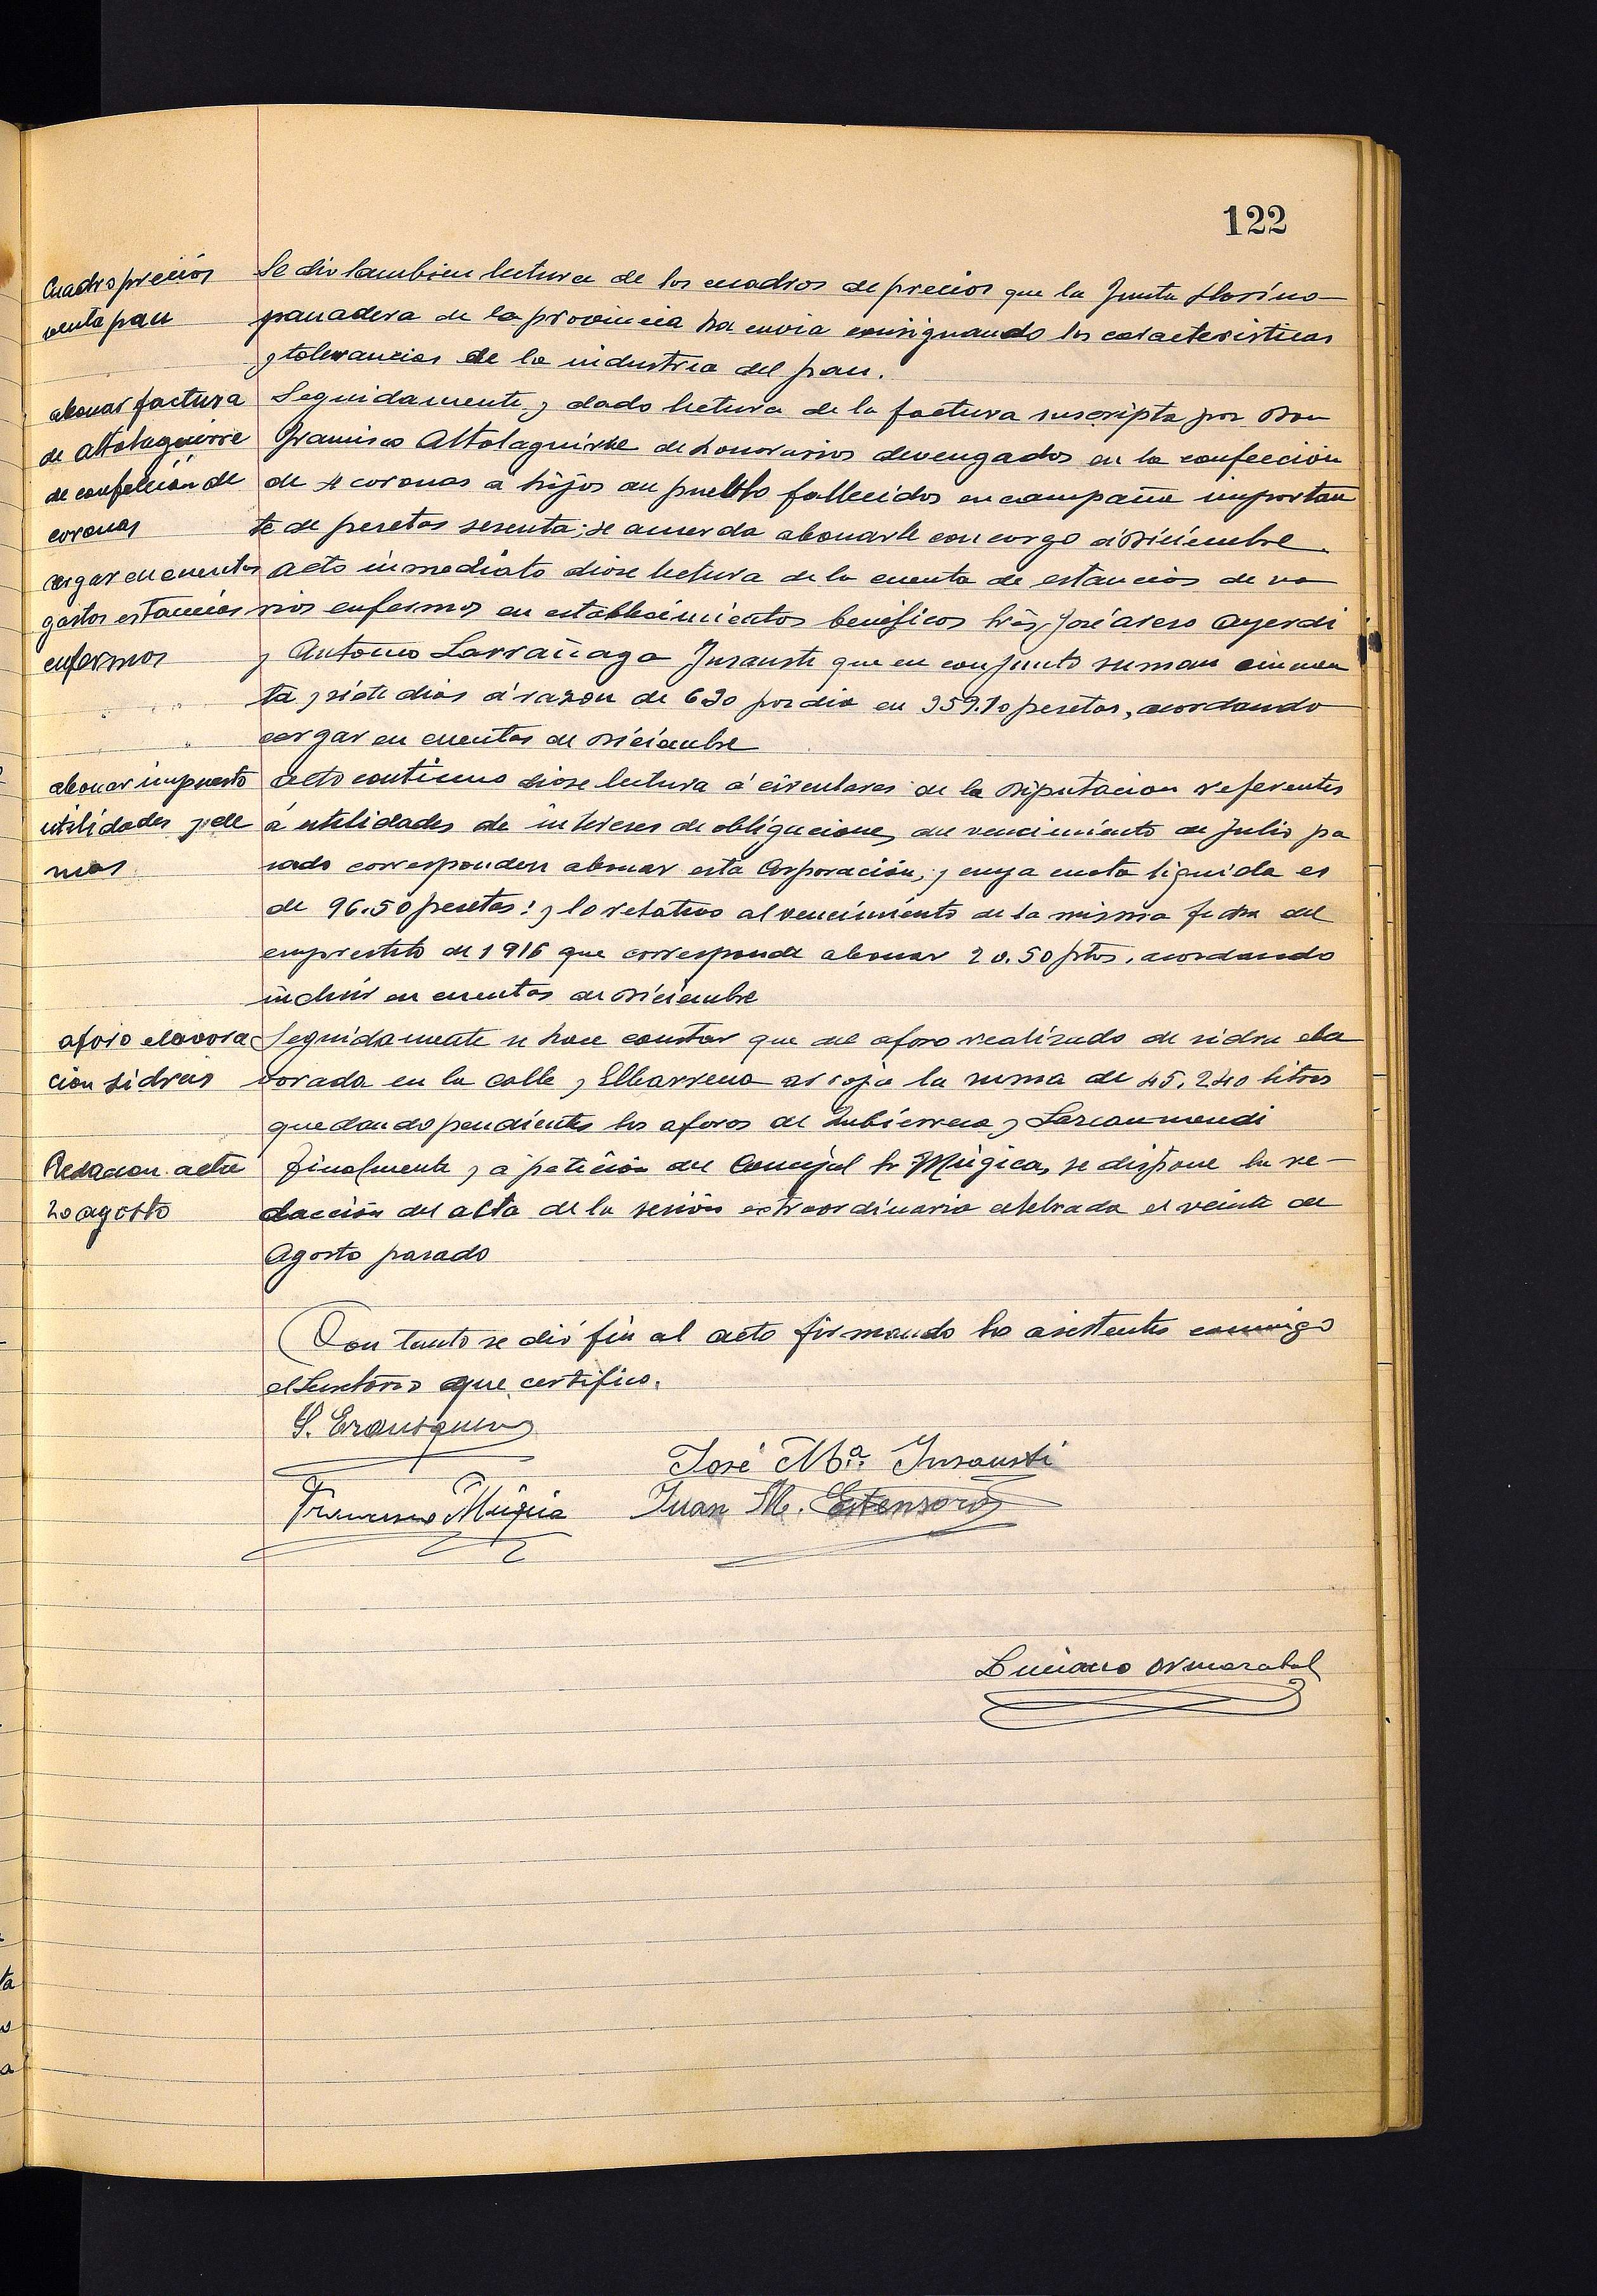 122
Cuadro precios
venta pan
Se dio tambien lectura de los cuadros de precios que la Junta Harino-
panadera de la provincia ha envia consignando las caracteristicas
y tolerancias de la industria del pan.
abonar factura
de Altolaguirre
de confección de
coronas
Seguidamente y dado lectura de la factura suscripta por Don
Francisco Altolaguirre de honorarios devengados en la confección
de 4 coronas a hijos del pueblo fallecidos en campaña importan
te de pesetas sesenta; se acuerda abonarle con cargo á Diciembre.
cargar en cuentas
gastos estancias
enfermos
Acto inmediato diose lectura de la cuenta de estancias de va
rios enfermos en establecimientos benéficos José Ayerdi
y Antonio Larrañaga Insausti que en conjunto suman cincuen
ta y siete dias á razon de 6 30 por dia en 359.10 pesetas, acordando
cargar en cuentas de Diciembre
abonar impuesto
utilidades y de
mas
Acto continuo diose lectura á circulares de la Diputacion referentes
á utilidades de intereses de obligaciones del vencimiento de Julio pa
sado corresponden abonar esta Corporación, y cuya cuota liquida es
de 96.50 pesetas: y lo relativo al vencimiento de la misma fecha del
emprestito de 1916 que corresponde abonar 20.50 ptas. acordando
incluir en cuentas de Diciembre
aforo elavora
cion sidras
Seguidamente se hace constar que del aforo realizado de sidra ela
vorada en la calle y Elbarrena arroja la suma de 45.240 litros
quedando pendientes los aforos de Zubierreca y Lazcaumendi
Redacion acta
20 agosto
Finalmente y a petición del Concejal Sr Múgica, se dispone la re-
dacción del acta de la sesión extraordinaria celebrada el veinte de
Agosto pasado
Con tanto se dió fin al acto firmando los asistentes conmigo
el Secretario que certifico.
S. Erausquin
José Mª. Insausti
Francisco Múgica
Juan M. Estensoro
Luciano Armarabal